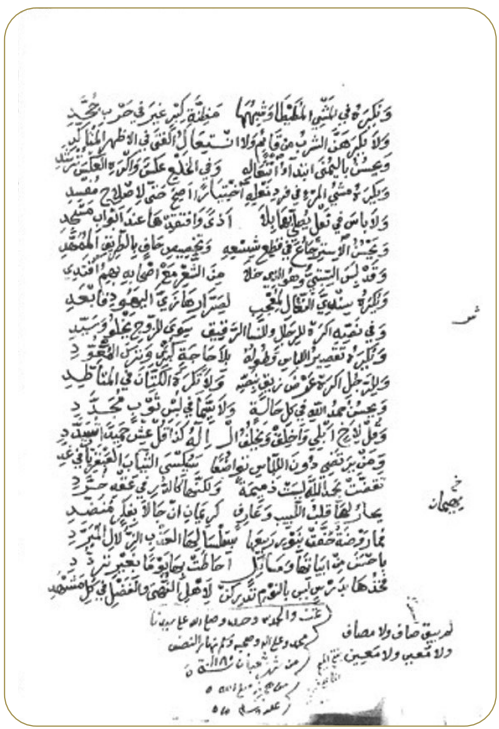 ونكره في المشي المطيطا وشبهها مظنة كبر غير في حرب جحد
ولا تكرهن الشرب من قائم ولا انتعال الفتى في الأظهر المتأكد
ويحسن باليمنى ابتداء انتعاله وفي الخلع عكس واكره العكس ترشد
ويكره مشي المرء في فرد نعله اختيارا أصخ حتى لاصلاح مفسد
ولا بأس في نعل يصلى بها بلا أذى وافتقدها عند أبواب مسجد
ويحسن الاسترجاع في قطع شسعه وتخصيص حاف بالطريق الممهد
وقد لبس السبتي وهو الذي خلا من الشعر مع أصحابه بهم اقتدي
ونكره سندي النعال لعجبه لصرارها زي اليهود فابعد
وفي نصه اكره للرجال وللنسا الرقيق سوى للزوج يخلو وسيد
ونكره تقصير اللباس وطوله بلا حاجة كبرا وترك المعود
وللرجل اكره عرض زيق بنصه ولا نكره الكتان في المتأطد
ويحسن حمد الله في كل حالة ولا سيما في لبس ثوب مجدد
وقل لاخ ابلي واخلق ويخلف ال اله كذا قل عش حميدا تسدد
ومن يرتضي دون اللباس تواضعا سيكسى الثياب العبقريات في غد
تقضت بحمد الله ليست ذميمة ولكنها كالدر في عقد خرد
يحار لها قلب اللبيب وعارف كريمان ان جالا بفكر منضد
فما روضة حفت بنور ربيعها بسلسالها العذب الزلال المبرد
باحسن من ابياتها ومسائل احاطت بها يوما بغير تردد
فخذها بدرس ليس بالنوم تدركن لاهل النهى والفضل في كل مشهد
تمت والحمد لله وحده وصلى الله على سيدنا
محمد وعلى اله وصحبه وسلم نهار النصف
من شهر شعبان
من هجرته صلى الله
عليه وسلم
لم يبق صاف ولا مصاف
ولا معين ولا معين